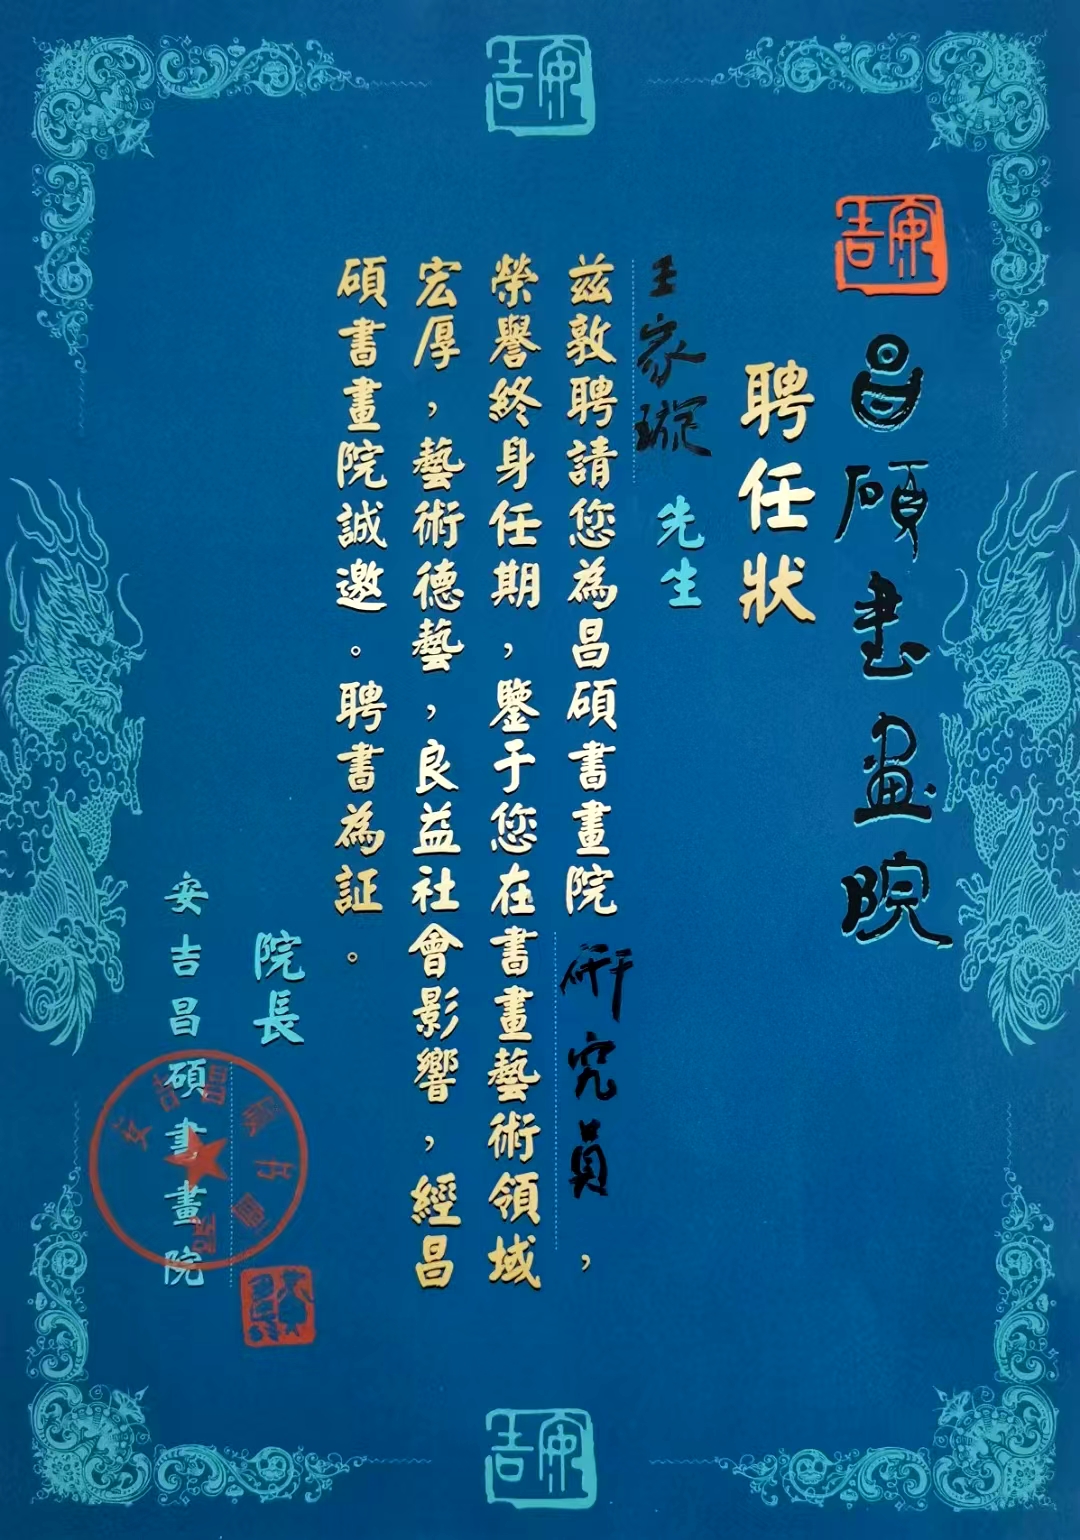 安吉
昌碩書画院
聘任狀
王家璇 先生
茲敦聘請您為昌碩書畫院 研究員，
榮譽終身任期，鑒于您在書畫藝術領域
宏厚，藝術德藝，良益社會影響，經昌
碩書畫院誠邀。聘書為証。
院長
安吉昌碩書畫院
安吉昌碩書畫院
安吉
安吉